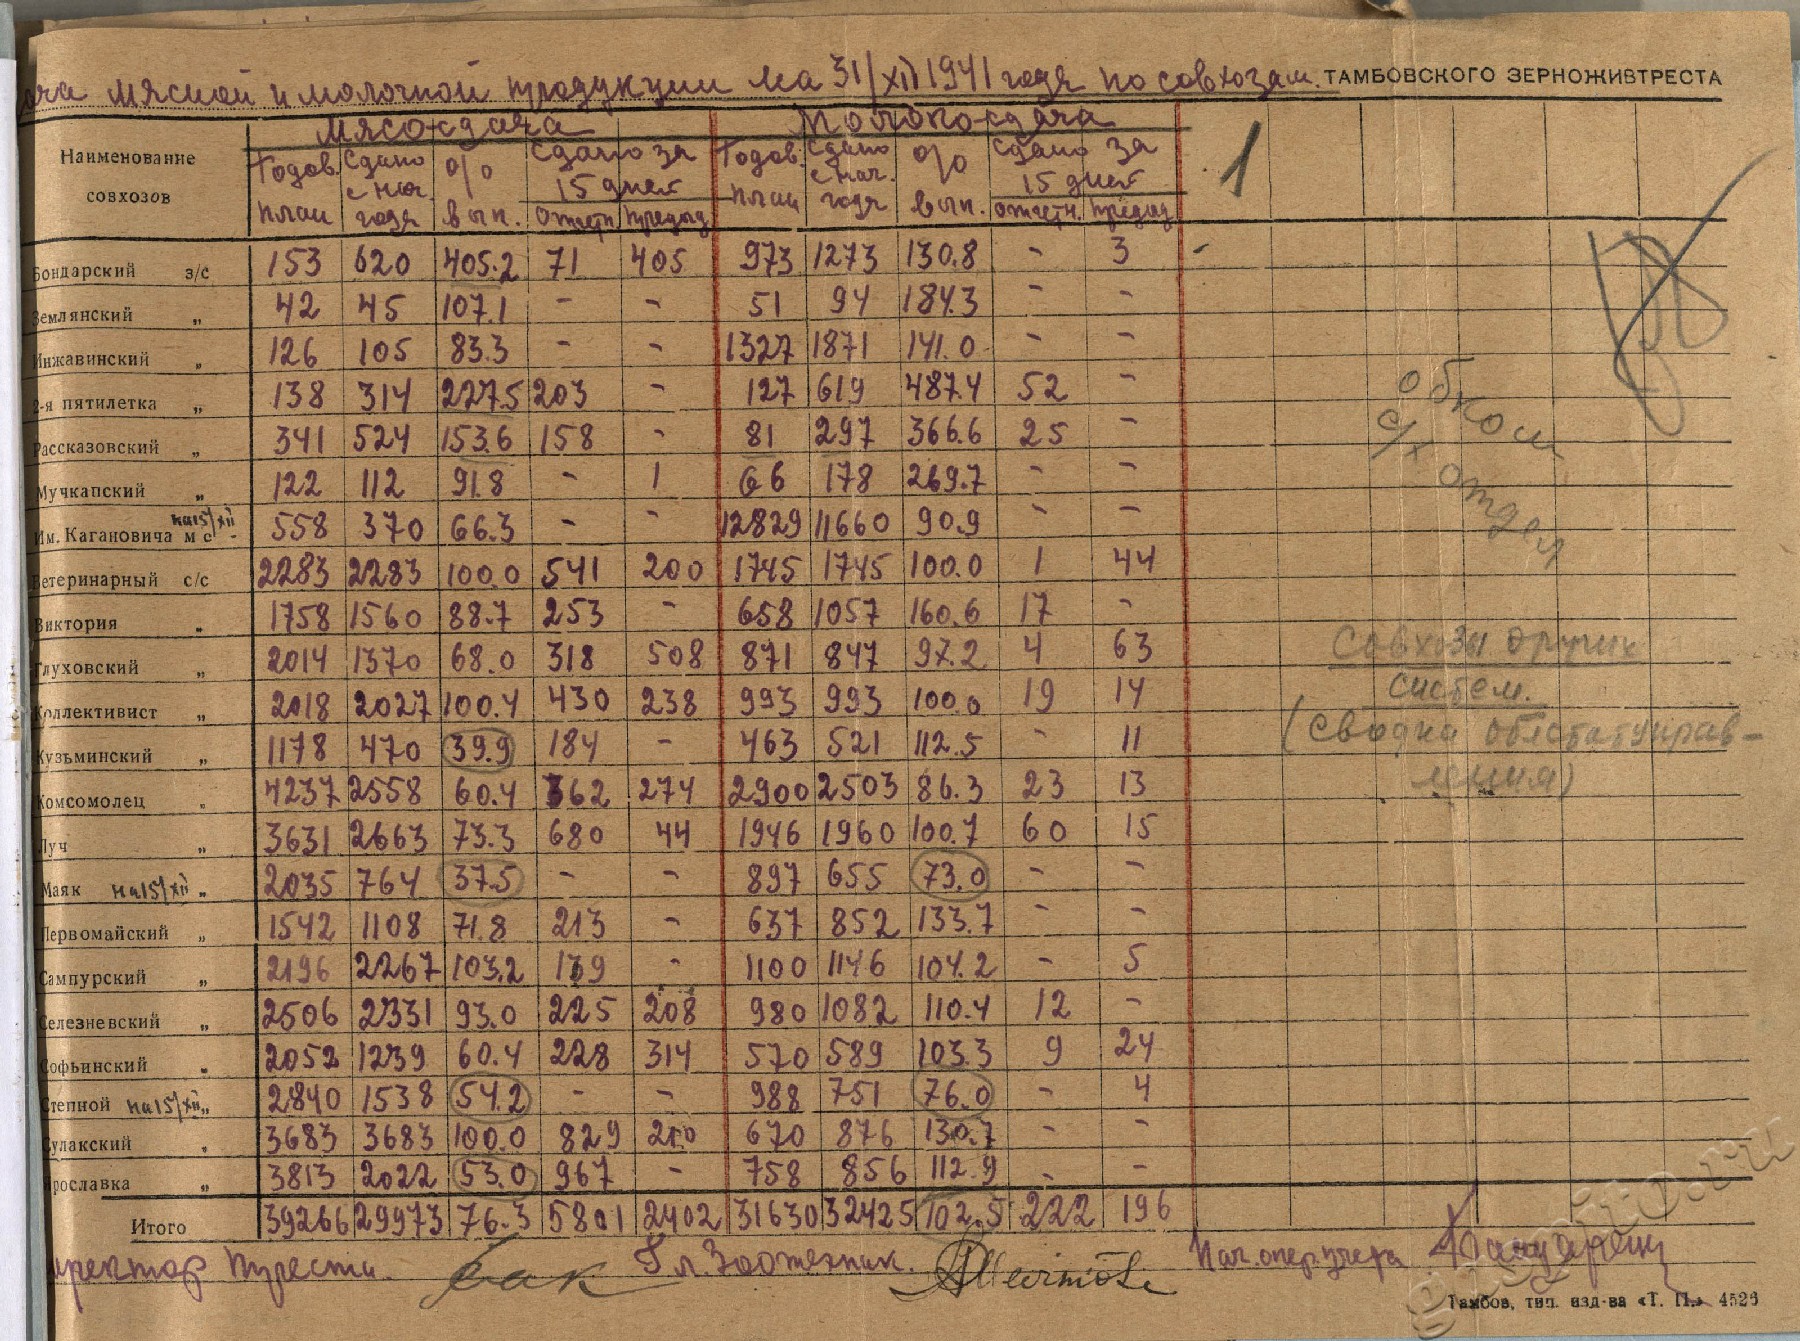 дача мясной и молочной продукции на 31/XII 1941 года по совхозам. ТАМБОВСКОГО ЗЕРНОЖИВТРЕСТА
Наименование совхозов Мясо-сдача Молоко-сдача 1
Годов. план Сдано с нач. года % вып. Сдано за 15 дней отчетн. предыд. Годов. план Сдано с нач. года % вып. Сдано за 15 дней отчетн. предыд.
Бондарский з/с 153 620 405.2 71 405 973 1273 130.8 - 3 -
Землянский „ 42 45 107.1 - - 51 94 184.3 - -
Инжавинский „ 126 105 83.3 - - 1327 1871 141.0 - -
2-я пятилетка „ 138 314 227.5 203 - 127 619 487.4 52 -
Рассказовский „ 341 524 153.6 158 - 81 297 366.6 25 -
Мучкапский „ 122 112 91.8 - 1 66 178 269.7 - -
Им. Кагановича м с на 15/XII 558 370 66.3 - - 12829 11660 90.9 - -
Ветеринарный с/с 2283 2283 100.0 541 200 1745 1745 100.0 1 44
Виктория „ 1758 1560 88.7 253 - 658 1057 160.6 17 -
Глуховский „ 2014 1370 68.0 318 508 871 847 97.2 4 63
Коллективист „ 2018 2027 100.4 430 238 993 993 100.0 19 14
Кузьминский „ 1178 470 39.9 184 - 463 521 112.5 - 11
Комсомолец „ 4237 2558 60.4 362 274 2900 2503 86.3 23 13
Луч „ 3631 2663 73.3 680 44 1946 1960 100.7 60 15
Маяк на 15/XII „ 2035 764 37.5 - - 897 655 73.0 - -
Первомайский „ 1542 1108 71.8 213 - 637 852 133.7 - -
Сампурский „ 2196 2267 103.2 139 - 1100 1146 104.2 - 5
Селезневский „ 2506 2331 93.0 225 208 980 1082 110.4 12 -
Софьинский „ 2052 1239 60.4 228 314 570 589 103.3 9 24
Степной на 15/XII „ 2840 1538 54.2 - - 988 751 76.0 - 4
Сулакский „ 3683 3683 100.0 829 210 670 876 130.7 - -
Ярославка „ 3813 2022 53.0 967 - 758 856 112.9 - -
Итого 39266 29973 76.3 5801 2402 31630 32425 102.5 222 196
обком
с/х отдел
Совхозы других
систем.
(сводка облстатуправ-
ления)
Директор треста. Гл. Зоотехник. Нач. опер. учета
Тамбов, тип. изд-ва «Т. П.» 4526
grwito.ru